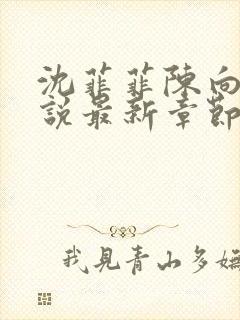 沈菲菲陳向
說最新章節
我見青山多嫵